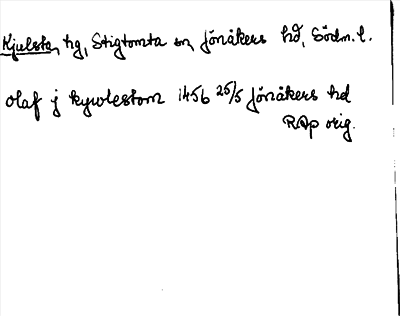 Kjulsta, hg, Stigtomta sn, Jönåkers hd, Södm. l.
Olaf j kywlestom 1456 25/5 Jönåkers hd
RAp orig.